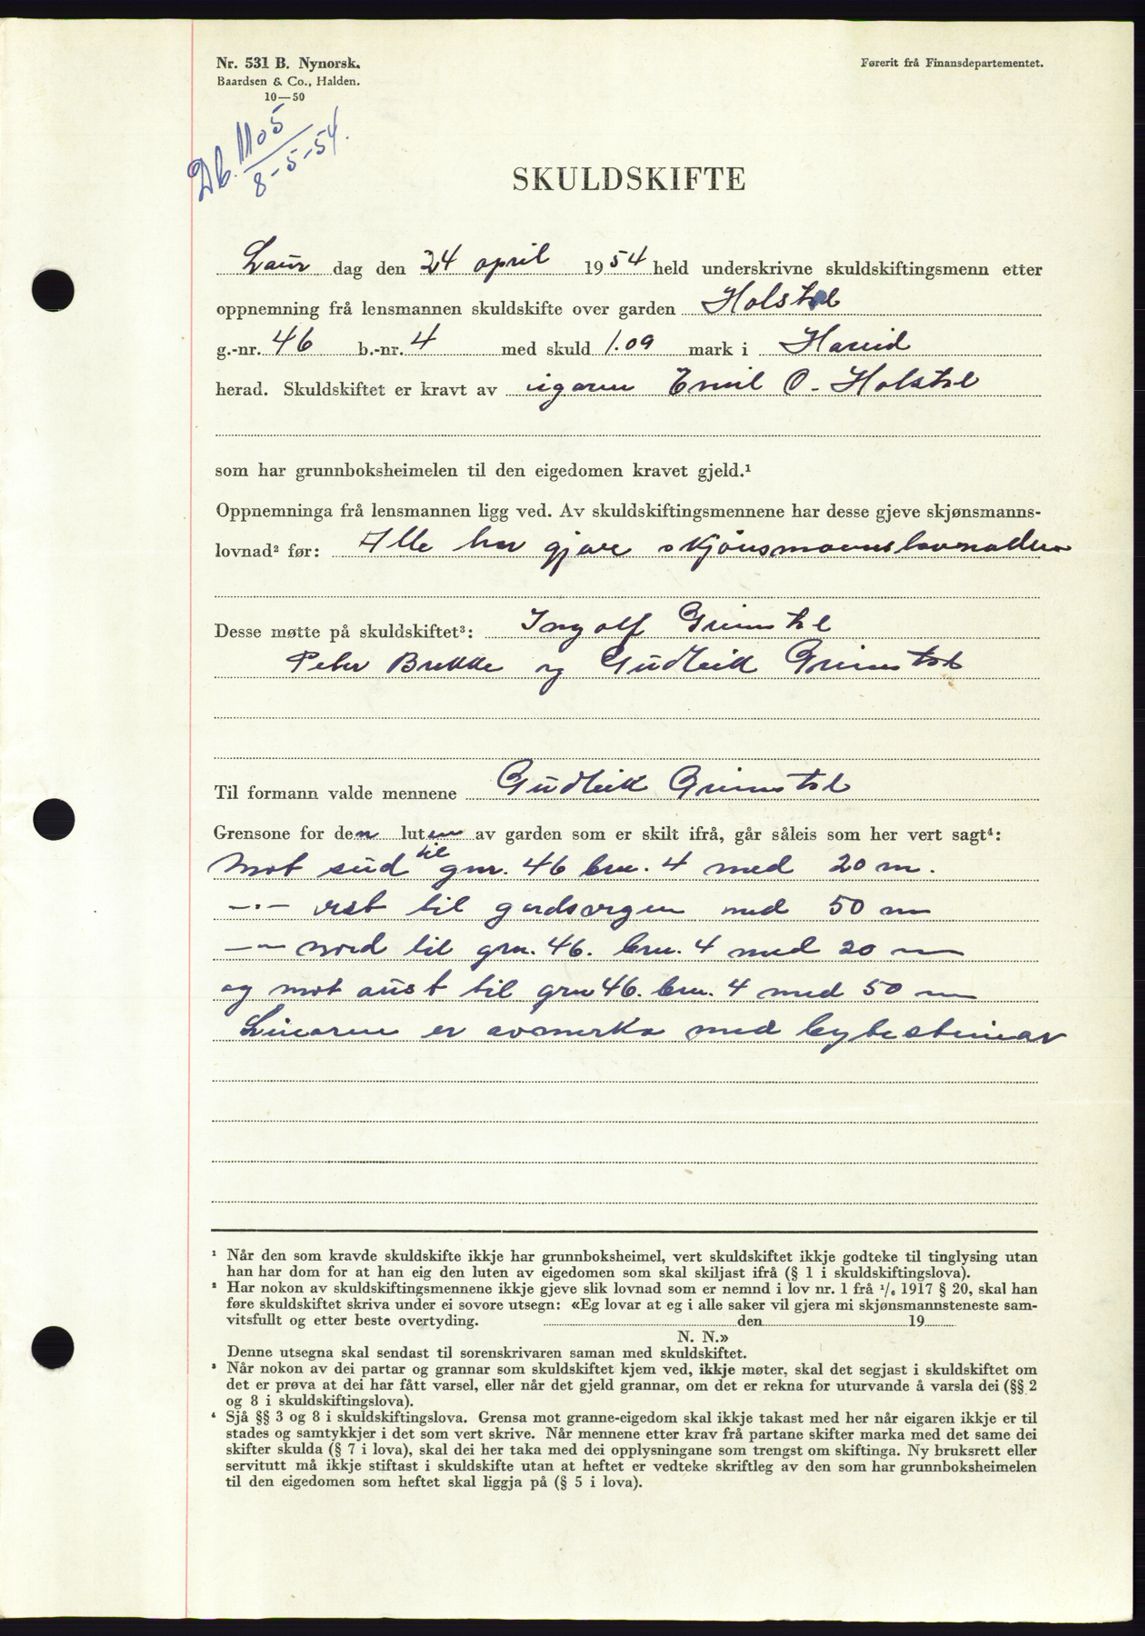 Nr. 531 B. Nynorsk.
Baardsen & Co., Halden.
10—50
Førerit frå Finansdepartementet.
Db. 1105
8-5-54.
SKULDSKIFTE
Laur dag den 24 april 1954 held underskrivne skuldskiftingsmenn etter
oppnemning frå lensmannen skuldskifte over garden Holstøl
g.-nr. 46 b.-nr. 4 med skuld 1.09 mark i Hareid
herad. Skuldskiftet er kravt av eigaren Emil O. Holstøl
som har grunnboksheimelen til den eigedomen kravet gjeld.¹
Oppnemninga frå lensmannen ligg ved. Av skuldskiftingsmennene har desse gjeve skjønsmanns-
lovnad² før: Alle har gjeve skjønsmannslovnaden
Desse møtte på skuldskiftet³: Ingolf Grimstol
Peter Brekke og Gudleik Grimstol
Til formann valde mennene Gudleik Grimstol
Grensone for den luten av garden som er skilt ifrå, går såleis som her vert sagt⁴:
Mot süd til gnr. 46 bru. 4 med 20 m.
—·— vest til gardsvegen med 50 m
—"— nord til grn. 46. bru. 4 med 20 m
og mot aust til grn 46. bru. 4 med 50 m
Linearne er avmerka med bytesteinar
¹ Når den som kravde skuldskifte ikkje har grunnboksheimel, vert skuldskiftet ikkje godteke til tinglysing utan
han har dom for at han eig den luten av eigedomen som skal skiljast ifrå (§ 1 i skuldskiftingslova).
² Har nokon av skuldskiftingsmennene ikkje gjeve slik lovnad som er nemnd i lov nr. 1 frå ¹/₆ 1917 § 20, skal han
føre skuldskiftet skriva under ei sovore utsegn: «Eg lovar at eg i alle saker vil gjera mi skjønsmannsteneste sam-
vitsfullt og etter beste overtyding. den 19
N. N.»
Denne utsegna skal sendast til sorenskrivaren saman med skuldskiftet.
³ Når nokon av dei partar og grannar som skuldskiftet kjem ved, ikkje møter, skal det segjast i skuldskiftet om
det er prøva at dei har fått varsel, eller når det gjeld grannar, om det er rekna for uturvande å varsla dei (§§ 2
og 8 i skuldskiftingslova).
⁴ Sjå §§ 3 og 8 i skuldskiftingslova. Grensa mot granne-eigedom skal ikkje takast med her når eigaren ikkje er til
stades og samtykkjer i det som vert skrive. Når mennene etter krav frå partane skifter marka med det same dei
skifter skulda (§ 7 i lova), skal dei her taka med dei opplysningane som trengst om skiftinga. Ny bruksrett eller
servitutt må ikkje stiftast i skuldskifte utan at heftet er vedteke skriftleg av den som har grunnboksheimelen
til den eigedomen som heftet skal liggja på (§ 5 i lova).